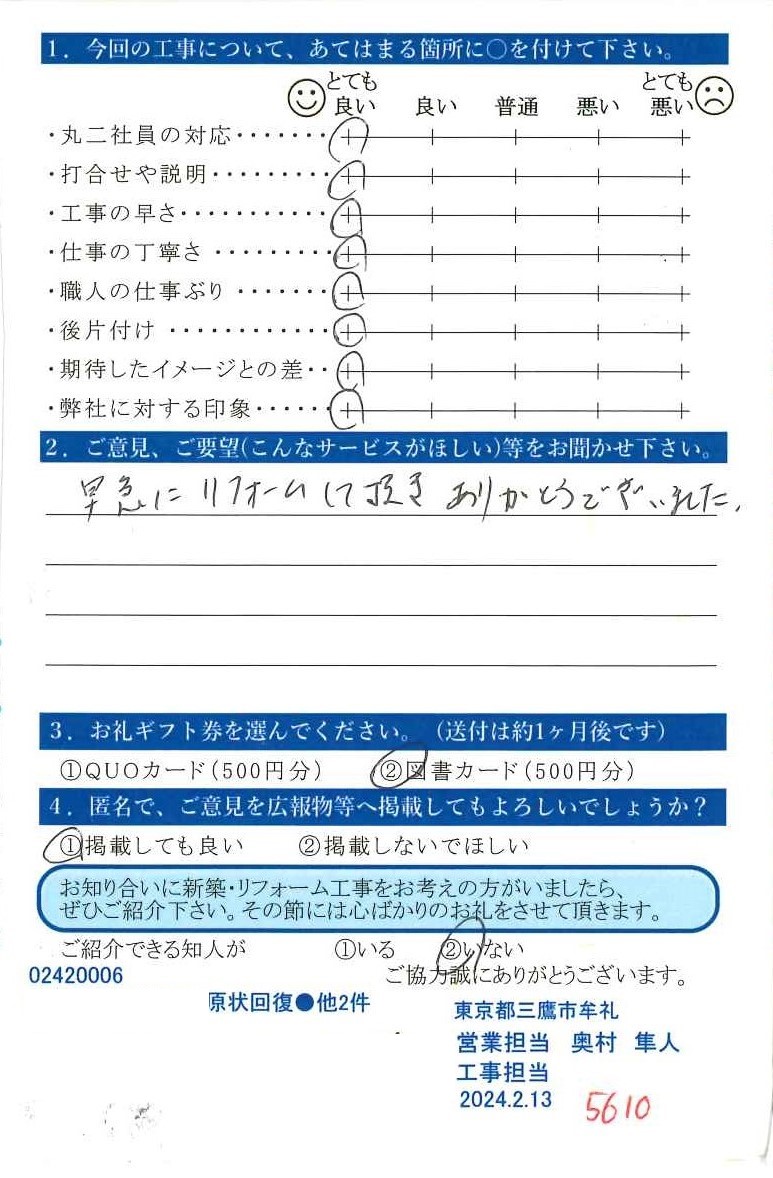 1. 今回の工事について、あてはまる箇所に○を付けて下さい。
とても良い 良い 普通 悪い とても悪い
・丸二社員の対応・・・・・・・
・打合せや説明・・・・・・・・・
・工事の早さ・・・・・・・・・・・
・仕事の丁寧さ ・・・・・・・・・
・職人の仕事ぶり ・・・・・・・
・後片付け ・・・・・・・・・・・・
・期待したイメージとの差・・
・弊社に対する印象・・・・・・
2. ご意見、ご要望(こんなサービスがほしい)等をお聞かせ下さい。
早急にリフォームして頂きありがとうございました。
3. お礼ギフト券を選んでください。 (送付は約1ヶ月後です)
①QUOカード(500円分) ②図書カード(500円分)
4. 匿名で、ご意見を広報物等へ掲載してもよろしいでしょうか?
①掲載しても良い ②掲載しないでほしい
お知り合いに新築・リフォーム工事をお考えの方がいましたら、
ぜひご紹介下さい。その節には心ばかりのお礼をさせて頂きます。
ご紹介できる知人が ①いる ②いない
02420006 ご協力誠にありがとうございます。
原状回復●他2件 東京都三鷹市牟礼
営業担当 奥村 隼人
工事担当
2024.2.13 5610